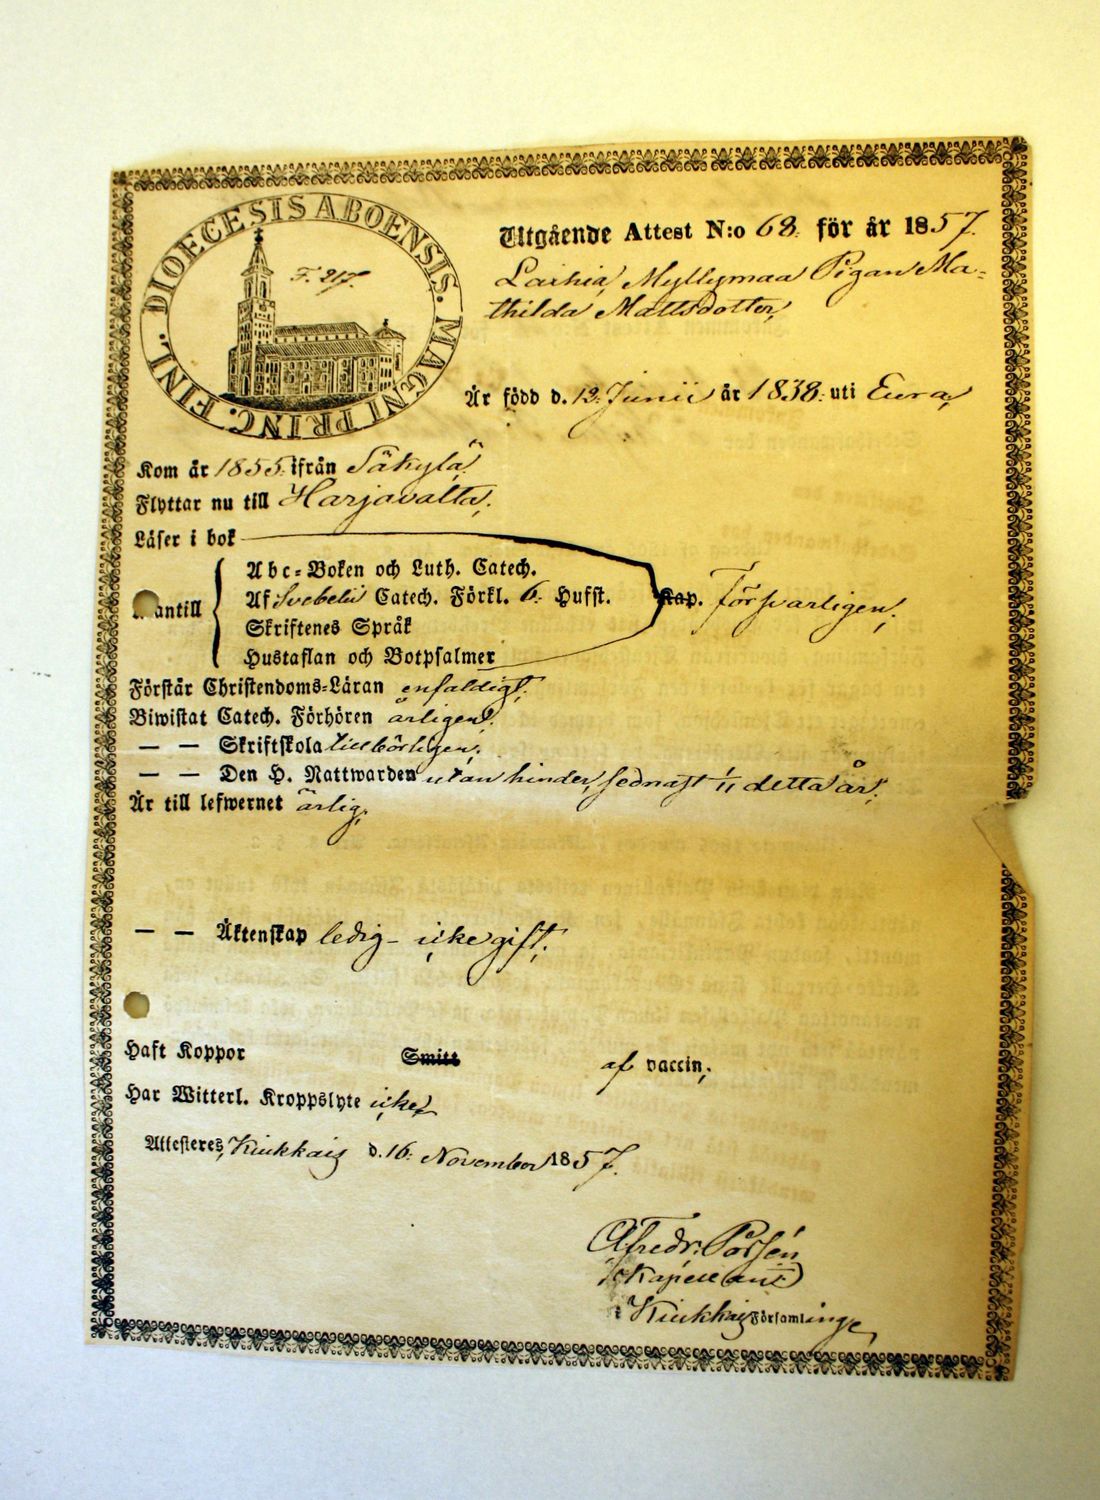 DIOECESIS ABOENSIS. MAGNI PRINC. FINL.
F. 217.
Utgående Attest N:o 68. för år 1857.
Laihia, Myllymaa Pigan Ma-
thilda Mattsdotter,
Är född d. 12. Junii år 1838. uti Eura,
Kom år 1855. ifrån Säkylä,
Flyttar nu till Harjavalta,
Läser i bok
Abc-Boken och Luth. Catech.
antill Af Svebelii Catech. Förkl. 6. Hufst. Kap. försvarligen,
Skriftenes Språk
Hustaflan och Botpsalmer
Förstår Christendoms-Läran enfaldigt,
Biwistat Catech. Förhören årligen,
— — Skriftskola tillbörligen,
— — Den H. Nattwarden utan hinder, sednast detta år,
Är till lefwernet ärlig,
— — Äktenskap ledig - icke gift,
Haft Koppor Smitt af vaccin,
Har Witterl. Kroppslyte icke,
Attesteres, Kiukkais d. 16. November 1857.
Alfredr. Porsén
Kapellant
i Kiukkais Församlinge